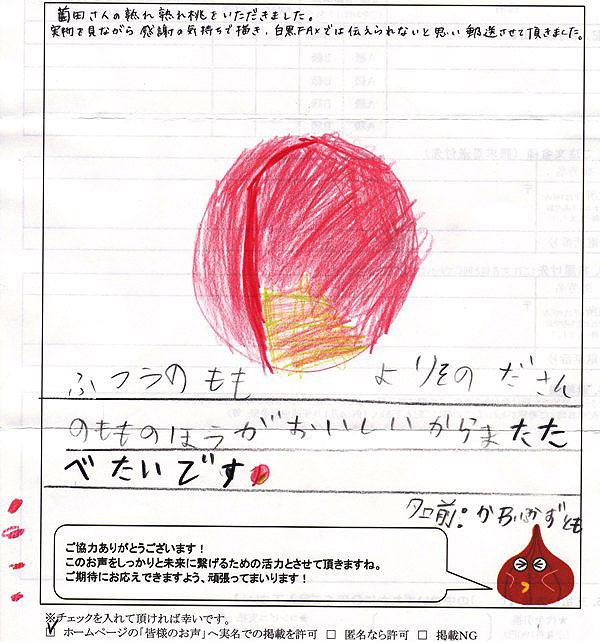 薗田さんの熟れ熟れ桃をいただきました。
実物を見ながら感謝の気持ちで描き、白黒FAXでは伝えられないと思い郵送させて頂きました。
ふつうのもも よりそのださん
のもものほうがおいしいからまたた
べたいです
名前:かずとも
ご協力ありがとうございます！
このお声をしっかりと未来に繋げるための活力とさせて頂きますね。
ご期待にお応えできますよう、頑張ってまいります！
※チェックを入れて頂ければ幸いです。
☑ ホームページの「皆様のお声」へ実名での掲載を許可 □ 匿名なら許可 □ 掲載NG